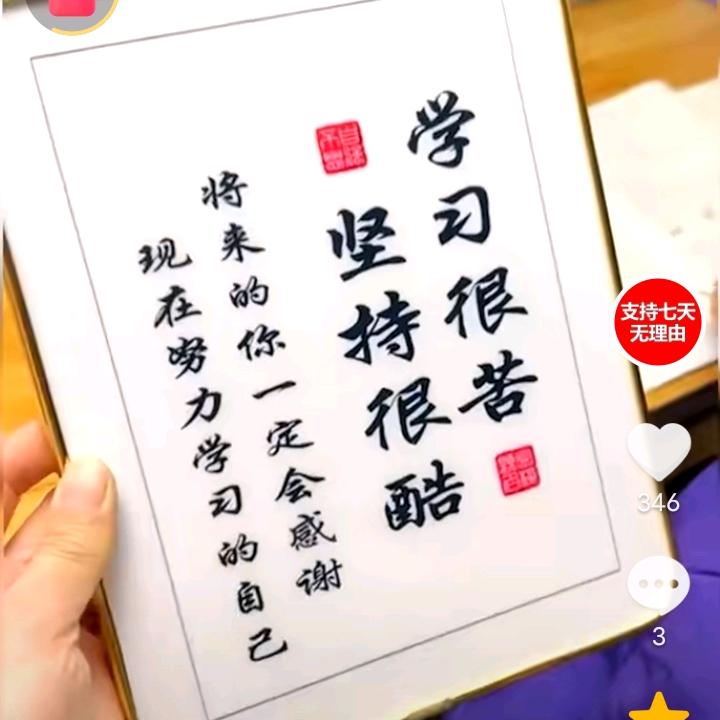 学习很苦
坚持很酷
将来的你一定会感谢
现在努力学习的自己
支持七天
无理由
346
3